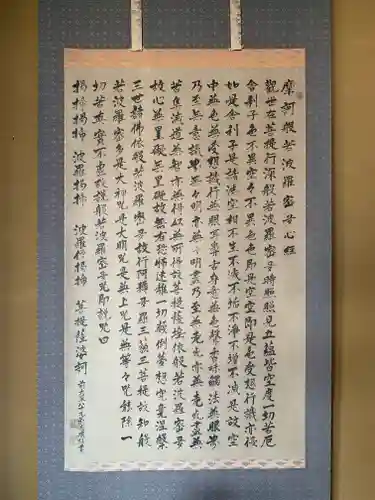 摩訶般若波羅蜜多心経
観世在菩提行深般若波羅蜜多時照見五蘊皆空度一切苦厄
舎利子色不異空空不異色色即是空空即是色受想行識亦復
如是舎利子是諸法空相不生不滅不垢不浄不増不減是故空
中無色無受想行無眼耳鼻舌身意無色声香味触法無眼界
乃至無意識界無無明亦無無明尽乃至無老死亦無老死尽無
苦集滅道無智亦無得以無所得故菩提薩埵依般若波羅蜜多
故心無罣礙無罣礙故無有恐怖遠離一切顛倒夢想究竟涅槃
三世諸佛依般若波羅蜜多故行阿耨多羅三藐三菩提故知般
若波羅蜜多是大神呪是大明呪是無上呪是無等々呪能除一
切苦真實不虚故説般若波羅蜜多呪即説呪曰
揭揥揭揥　波羅揭揥　波羅僧揭揥　菩提薩婆訶